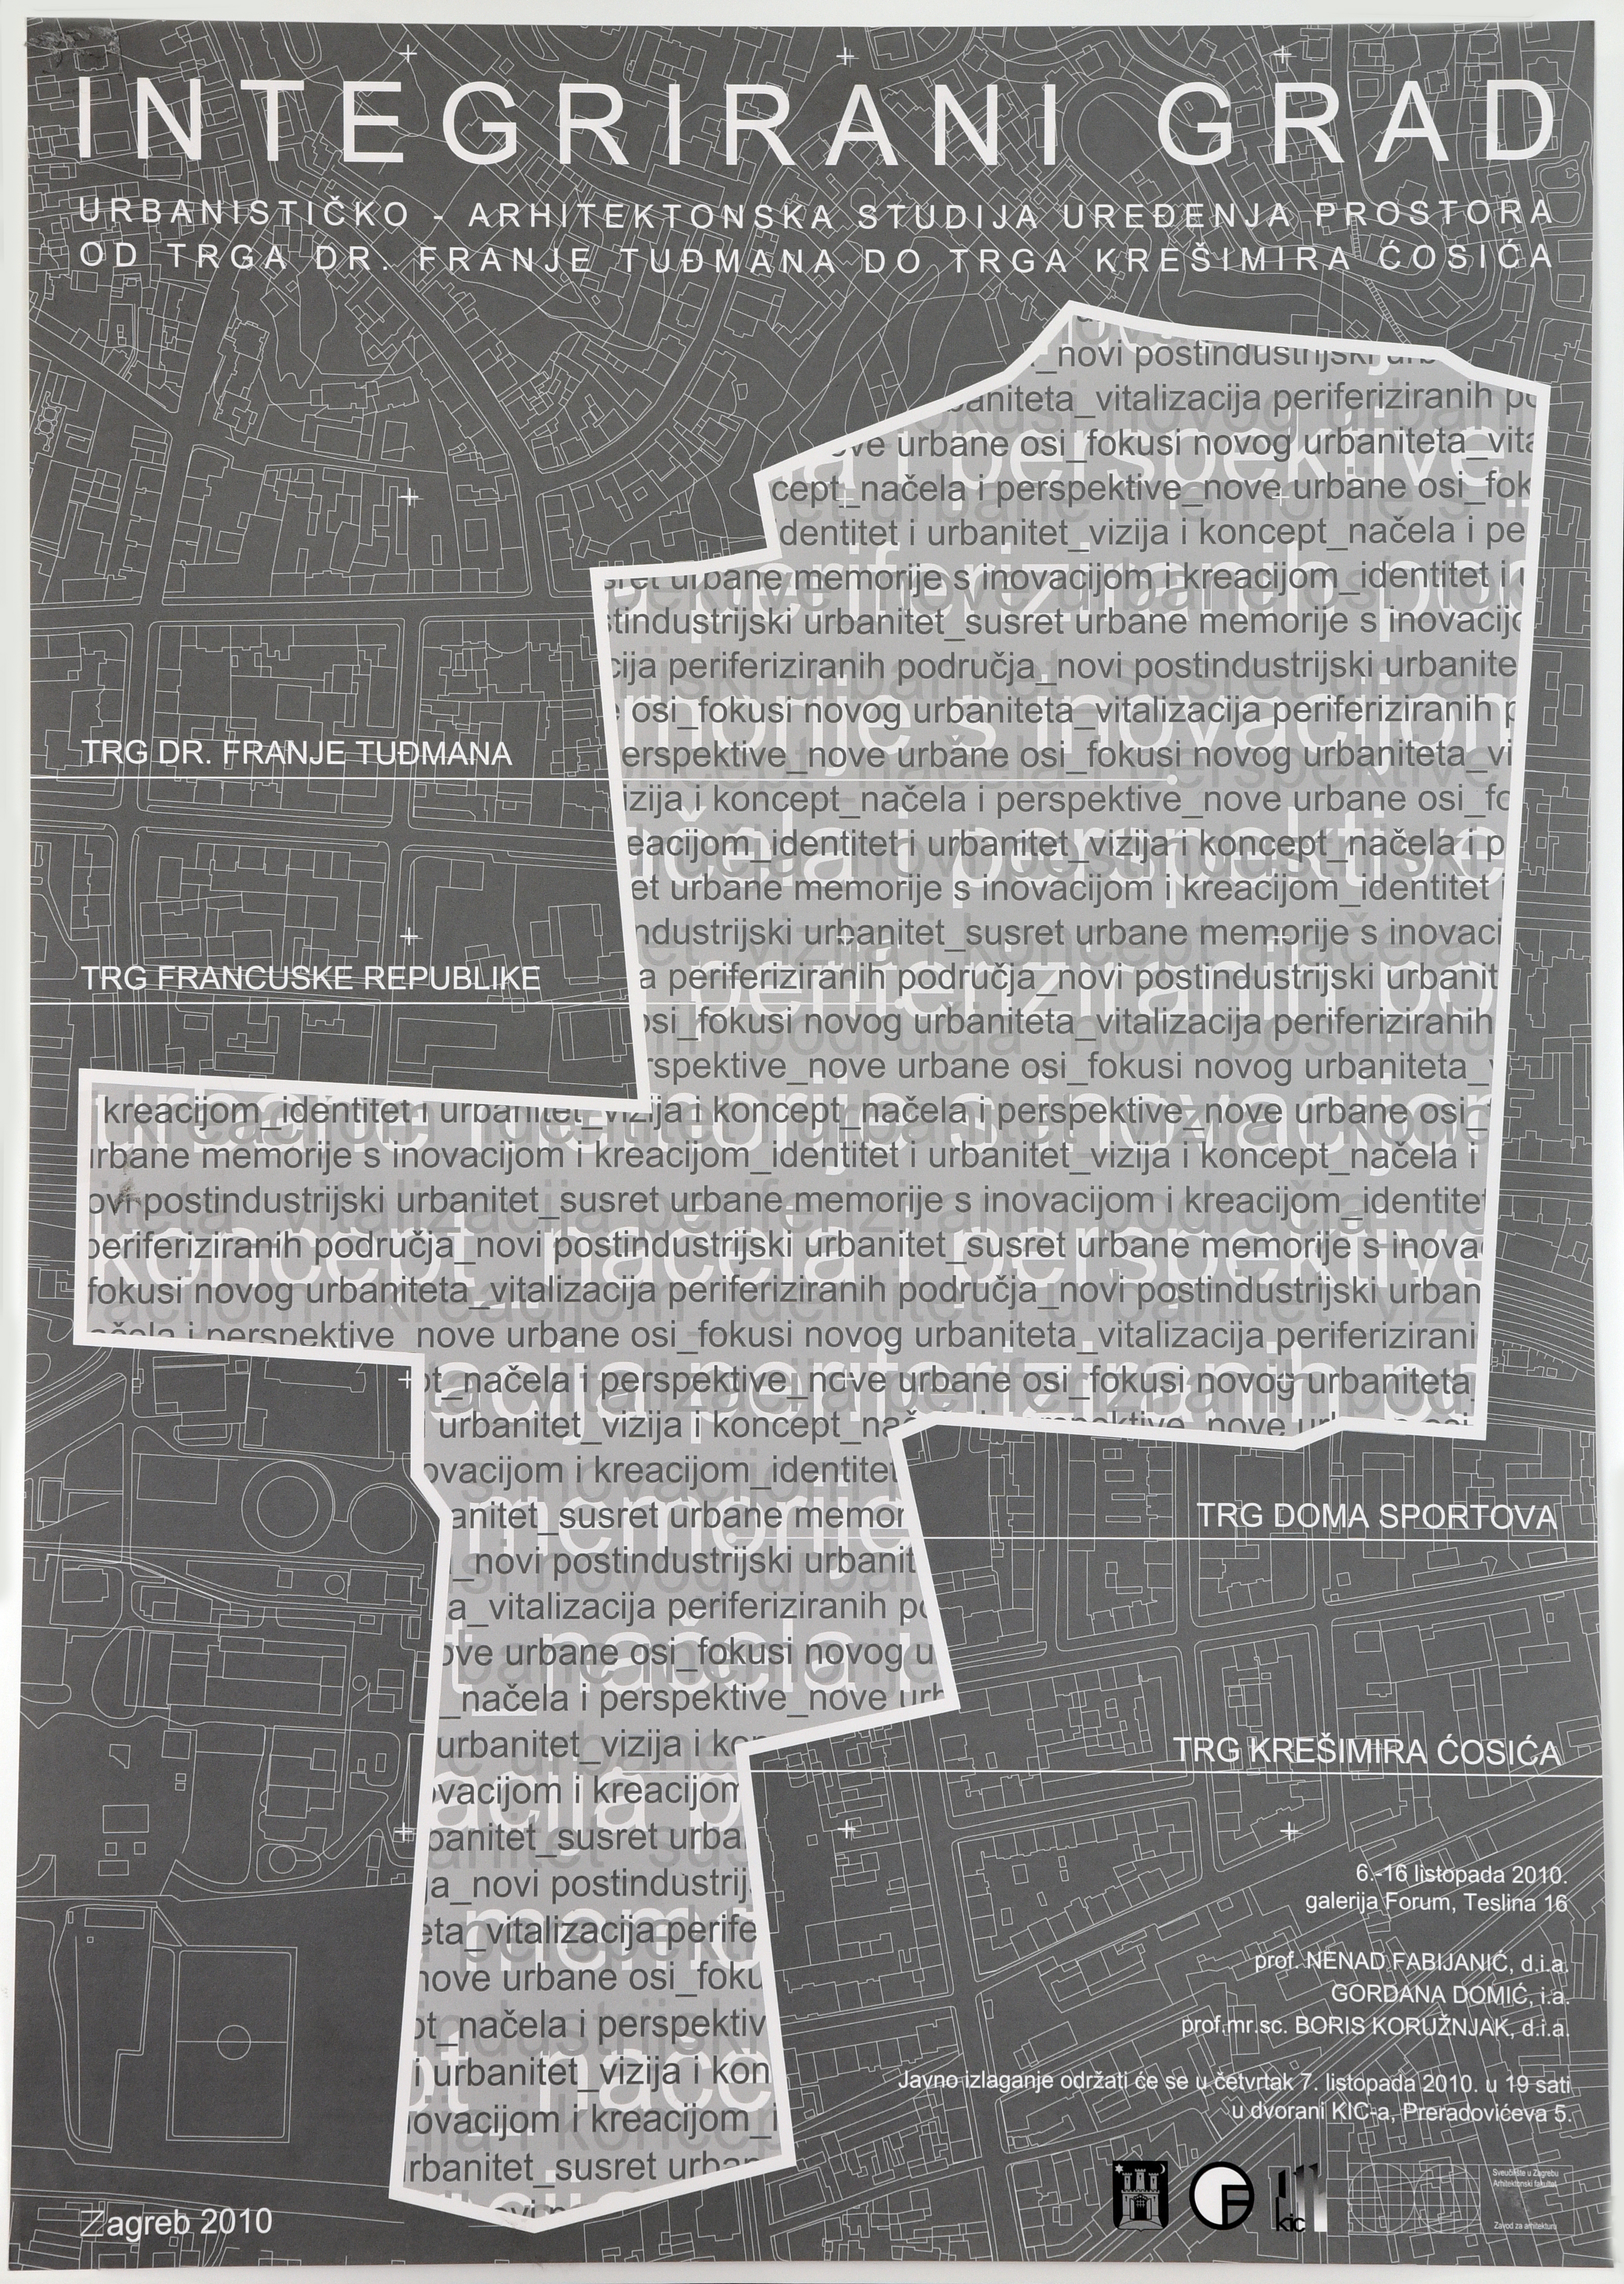 INTEGRIRANI GRAD
URBANISTIČKO - ARHITEKTONSKA STUDIJA UREĐENJA PROSTORA
OD TRGA DR. FRANJE TUĐMANA DO TRGA KREŠIMIRA ĆOSIĆA
_novi postindustrijski urb
baniteta_vitalizacija periferiziranih po
ove urbane osi_fokusi novog urbaniteta_vita
cept_načela i perspektive_nove urbane osi_fok
identitet i urbanitet_vizija i koncept_načela i pe
sret urbane memorije s inovacijom i kreacijom_identitet i u
stindustrijski urbanitet_susret urbane memorije s inovacijo
cija periferiziranih područja_novi postindustrijski urbanite
osi_fokusi novog urbaniteta_vitalizacija periferiziranih p
TRG DR. FRANJE TUĐMANA
erspektive_nove urbane osi_fokusi novog urbaniteta_vi
izija i koncept_načela i perspektive_nove urbane osi_fo
eacijom_identitet i urbanitet_vizija i koncept_načela i p
et urbane memorije s inovacijom i kreacijom_identitet
ndustrijski urbanitet_susret urbane memorije s inovaci
TRG FRANCUSKE REPUBLIKE
a periferiziranih područja_novi postindustrijski urbanit
osi_fokusi novog urbaniteta_vitalizacija periferiziranih
rspektive_nove urbane osi_fokusi novog urbaniteta_
i kreacijom_identitet i urbanitet_vizija i koncept_načela i perspektive_nove urbane osi_
urbane memorije s inovacijom i kreacijom_identitet i urbanitet_vizija i koncept_načela i
ovi postindustrijski urbanitet_susret urbane memorije s inovacijom i kreacijom_identitet
periferiziranih područja_novi postindustrijski urbanitet_susret urbane memorije s inova
fokusi novog urbaniteta_vitalizacija periferiziranih područja_novi postindustrijski urban
ačela i perspektive_nove urbane osi_fokusi novog urbaniteta_vitalizacija periferizirani
pt_načela i perspektive_nove urbane osi_fokusi novog urbaniteta_
urbanitet_vizija i koncept_nač
ovacijom i kreacijom_identitet
anitet_susret urbane memor
TRG DOMA SPORTOVA
_novi postindustrijski urbanit
a_vitalizacija periferiziranih po
ove urbane osi_fokusi novog u
_načela i perspektive_nove urb
urbanitet_vizija i kon
TRG KREŠIMIRA ĆOSIĆA
ovacijom i kreacijom
banitet_susret urba
ja_novi postindustrij
eta_vitalizacija perife
nove urbane osi_foku
pt_načela i perspektiv
i urbanitet_vizija i kon
novacijom i kreacijom_i
urbanitet_susret urban
6.-16 listopada 2010.
galerija Forum, Teslina 16
prof. NENAD FABIJANIĆ, d.i.a.
GORDANA DOMIĆ, i.a.
prof.mr.sc. BORIS KORUŽNJAK, d.i.a.
Javno izlaganje održati će se u četvrtak 7. listopada 2010. u 19 sati
u dvorani KIC-a, Preradovićeva 5.
Zagreb 2010
kic
Sveučilište u Zagrebu
Arhitektonski fakultet
Zavod za arhitekturu